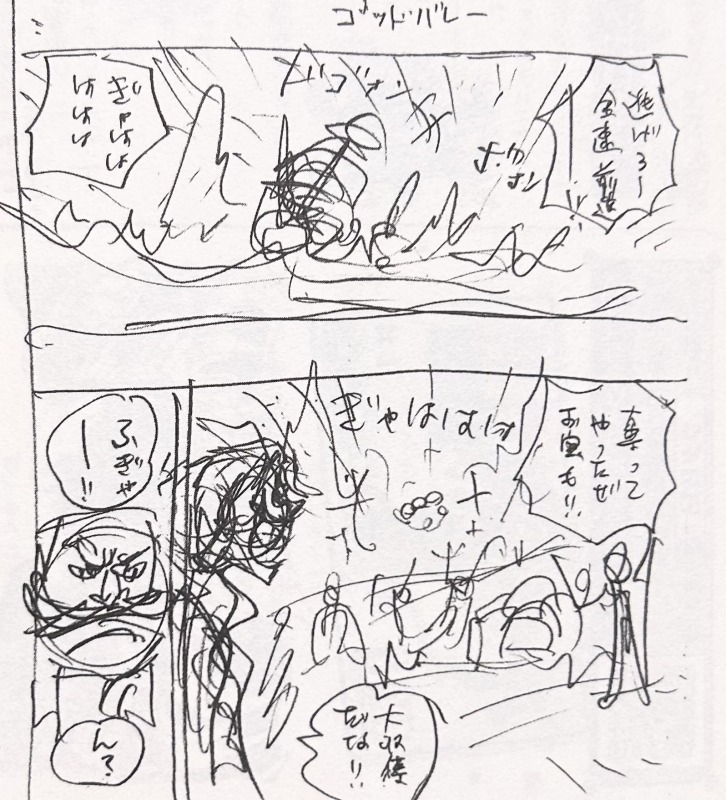 ゴッドバレー
逃げろー
全速前進
ドゴォン
ぎゃはは
ははは
奪って
やったぜ
お宝も!!
ぎゃははは
大収穫
だな!!
ふぎゃ
ー!!
ん?